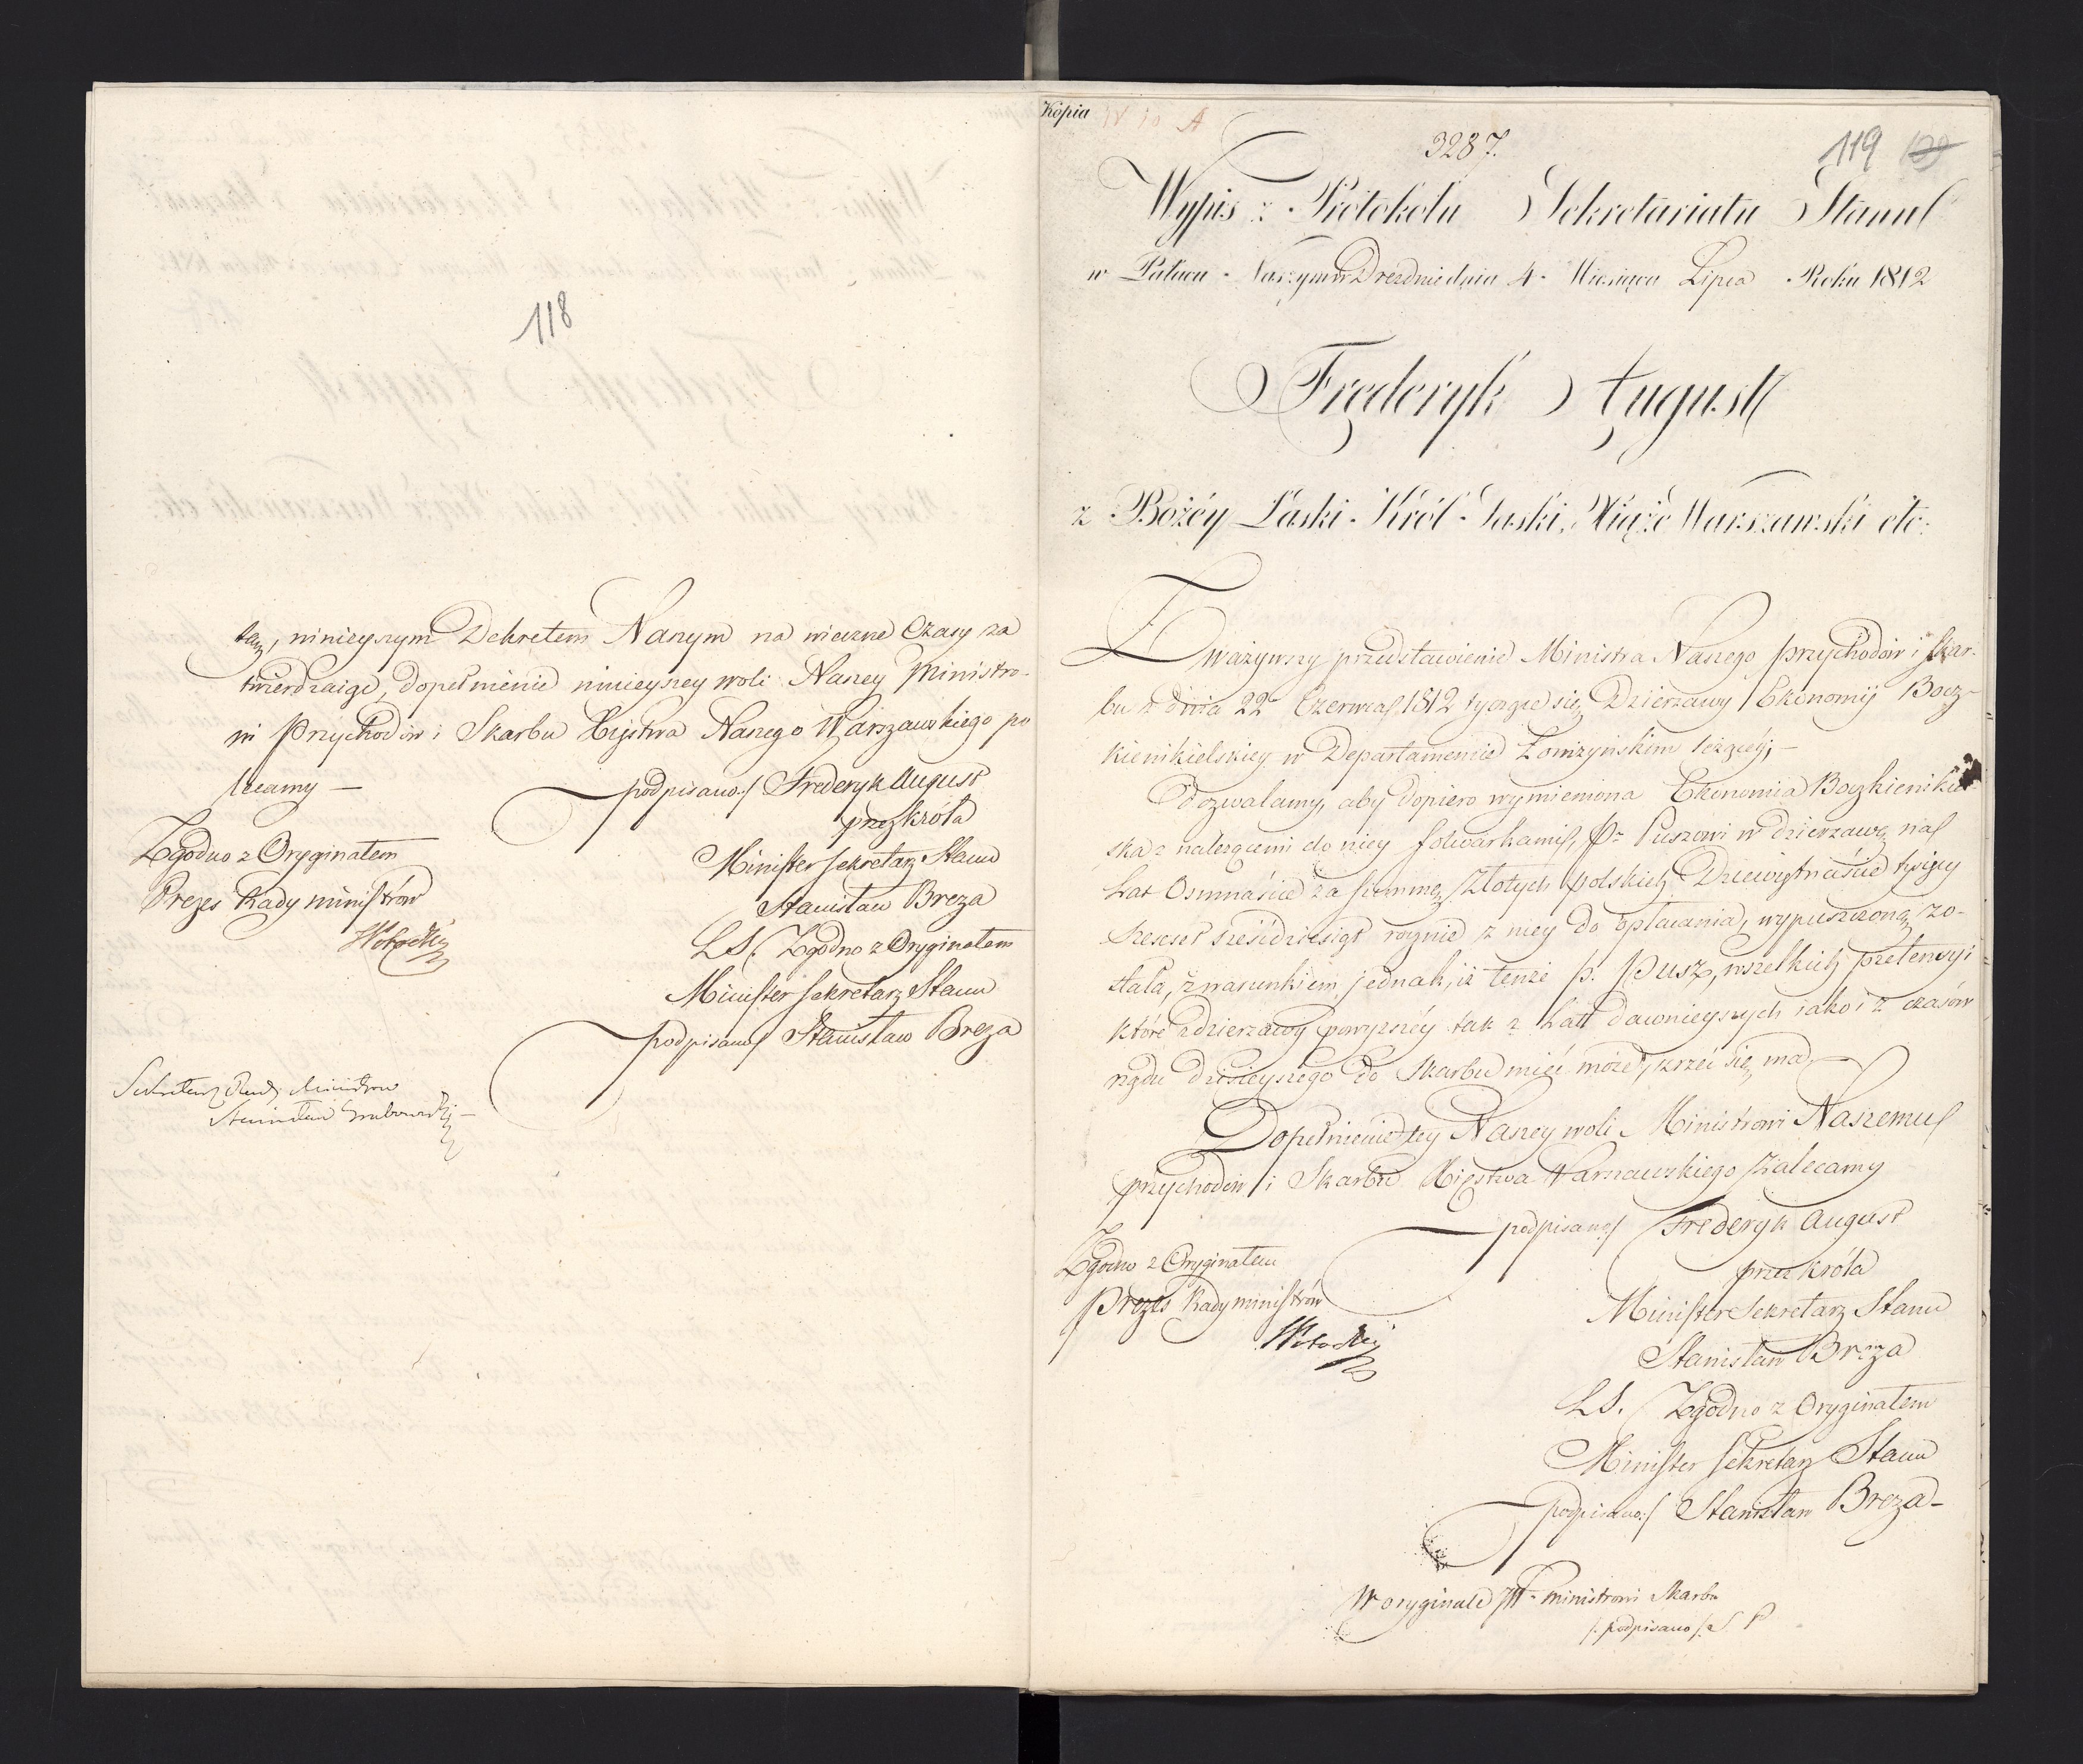 118
tey, ninieyszym Dekretem Naszym na wieczne Czasy za
twierdzaiąc, dopełnienie ninieyszey woli Naszey Ministro-
wi Przychodów i Skarbu Xięstwa Naszego Warszawskiego po
lecamy —
podpisano:/ Frederyk August
przez Króla
Minister Sekretarz Stanu
Stanisław Breza
LS. Zgodno z Oryginałem
Minister Sekretarz Stanu
podpisano/ Stanisław Breza
Zgodno z Oryginałem
Prezes Rady Ministrów
Sekretarz Rady Ministrów
Stanisław Grabowski
Kopia
3287.
119
Wypis z Protokołu Sekretariatu Stanu
w Pałacu Naszym w Dreźnie dnia 4 Miesiąca Lipca Roku 1812
Fryderyk August
z Bożéy Łaski Król Saski, Xiąże Warszawski etc:
Zważywszy przedstawienie Ministra Naszego przychodów i Skar-
bu z dnia 22 Czerwca 1812 tyczące się Dzierzawy Ekonomij Bocz-
kienikielskiey w Departamencie Łomżyńskim leżącéy, —
Dozwalamy, aby dopiero wymieniona Ekonomia Boczkienikiel-
ska z należącemi do niey folwarkami, P. Puszowi w dzierzawę na
Lat Osmnaście za summę Złotych polskich Dziewiętnaście tysięcy
Szescset sześćdziesiąt rocznie z niey do opłacania, wypuszczoną zo-
stała, z warunkiem jednak, iż tenże P. Pusz, wszelkich pretensyi
które z dzierzawy powyższéy tak z Latt dawnieyszych iako i z czasów
rządu dzisieyszego do Skarbu mieć może, zrzec się ma,
Dopełnienie tey Naszey woli Ministrowi Naszemu
przychodów i Skarbu Xięstwa Warszawskiego zalecamy
podpisano/ Frederyk August
przez Króla
Minister Sekretarz Stanu
Stanisław Breza
LS. Zgodno z Oryginałem
Minister Sekretarz Stanu
podpisano:/ Stanisław Breza —
Zgodno z Oryginałem
Prezes Rady Ministrów
W oryginale JW. Ministrowi Skarbu
/: podpisano /: S P